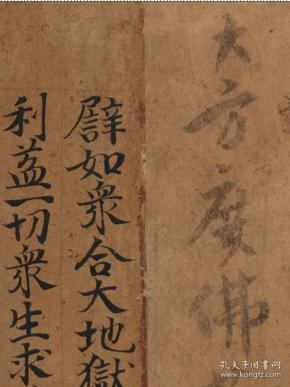 大方廣佛
譬如衆合大地獄
利益一切衆生求
孔夫子旧书网